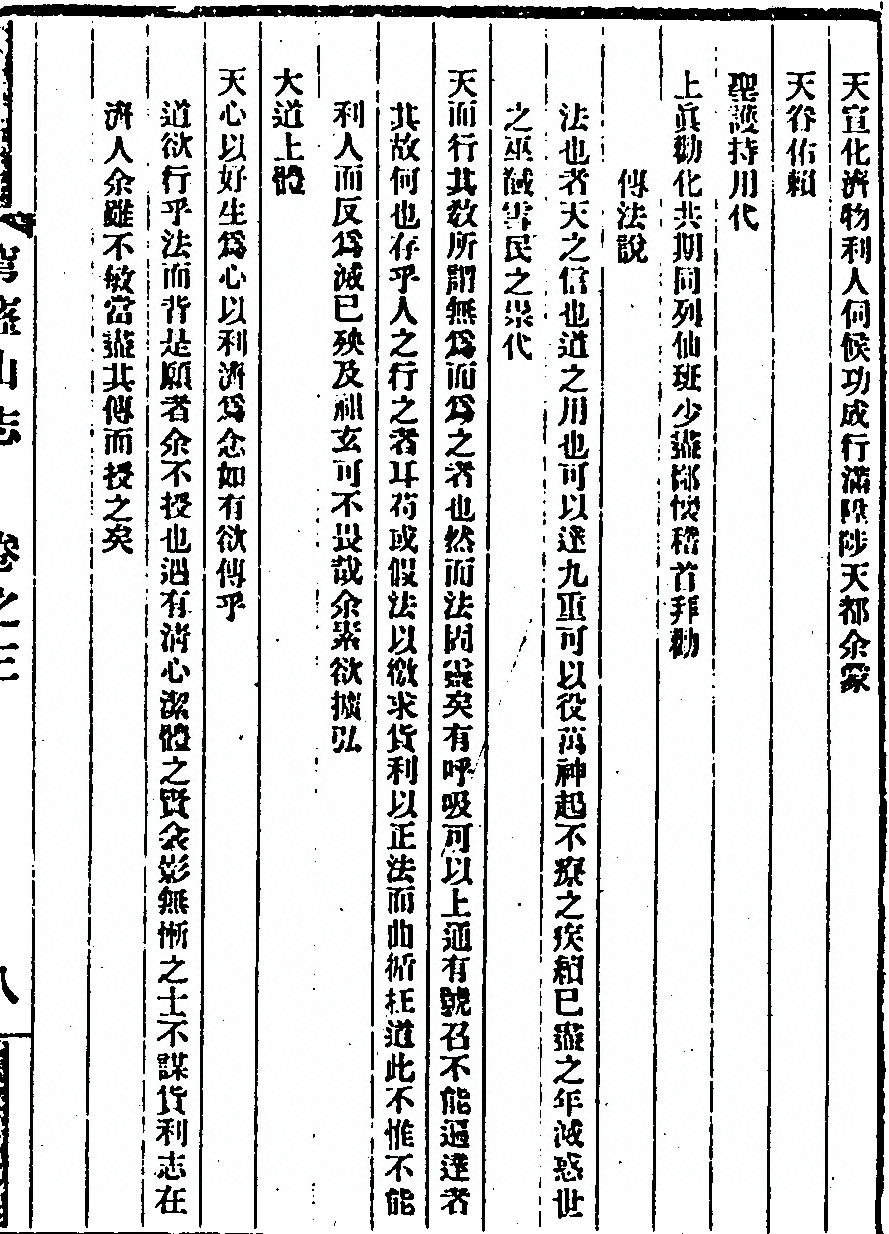 天宣化濟物利人伺候功成行滿陞陟天都余蒙
天眷佑賴
聖護持用代
上眞勸化共期同列仙班少盡鄙懷稽首拜勸
傳法說
法也者天之信也道之用也可以達九重可以役萬神起不療之疾賴已盡之年滅惑世
之巫馘害民之祟代
天而行其敎所謂無爲而爲之者也然而法固靈矣有呼吸可以上通有號召不能遍達者
其故何也存乎人之行之者耳苟或假法以徼求貨利以正法而曲循枉道此不惟不能
利人而反爲滅已殃及祖玄可不畏哉余素欲擴弘
大道上體
天心以好生爲心以利濟爲念如有欲傳乎
道欲行乎法而背是願者余不授也遇有淸心潔體之賢衾影無慚之士不謀貨利志在
濟人余雖不敏當盡其傳而授之矣
窩盛山志 卷之三 八